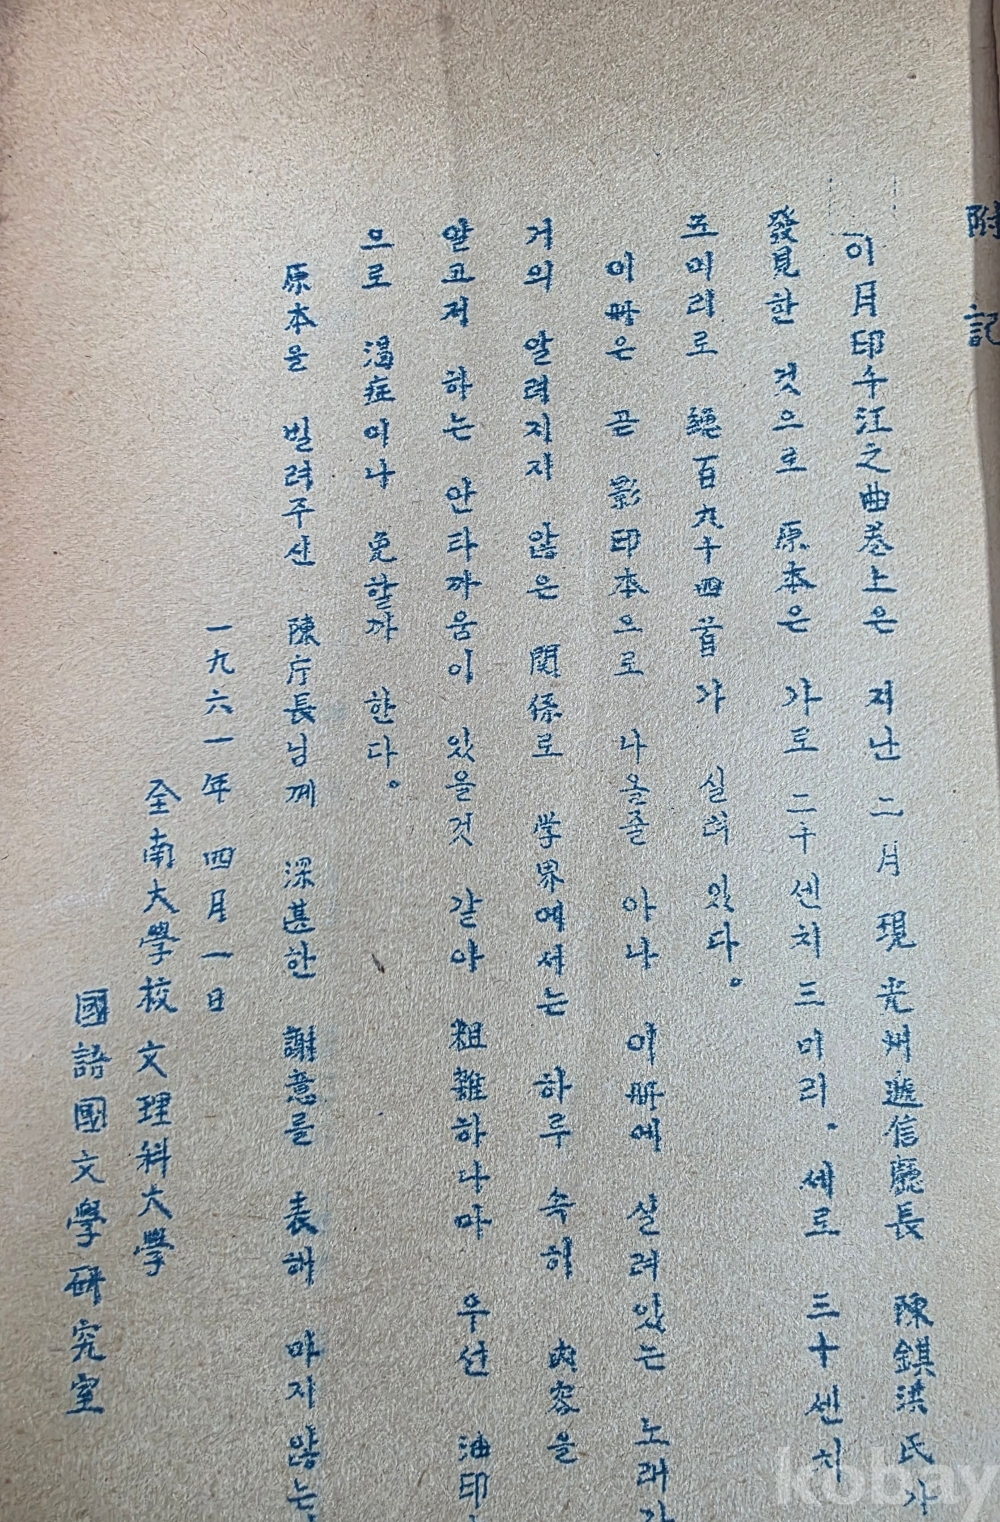 附記
이 月印千江之曲卷上은 지난 二月 現 光州遞信廳長 陳錤洪氏가
發見한 것으로 原本은 가로 二十센치 三미리. 세로 三十센치
五미리로 總百九十四首가 실려 있다。
이 册은 곧 影印本으로 나올줄 아나 이册에 실려있는 노래가
거의 알려지지 않은 関係로 学界에서는 하루 속히 內容을
알고저 하는 안타까움이 있을것 같아 粗雜하나마 우선 油印
으로 渴症이나 免할까 한다。
原本을 빌려주신 陳庁長님께 深甚한 謝意를 表해 마지않는
一九六一年 四月一日
全南大學校 文理科大學
國語國文學研究室
kobay